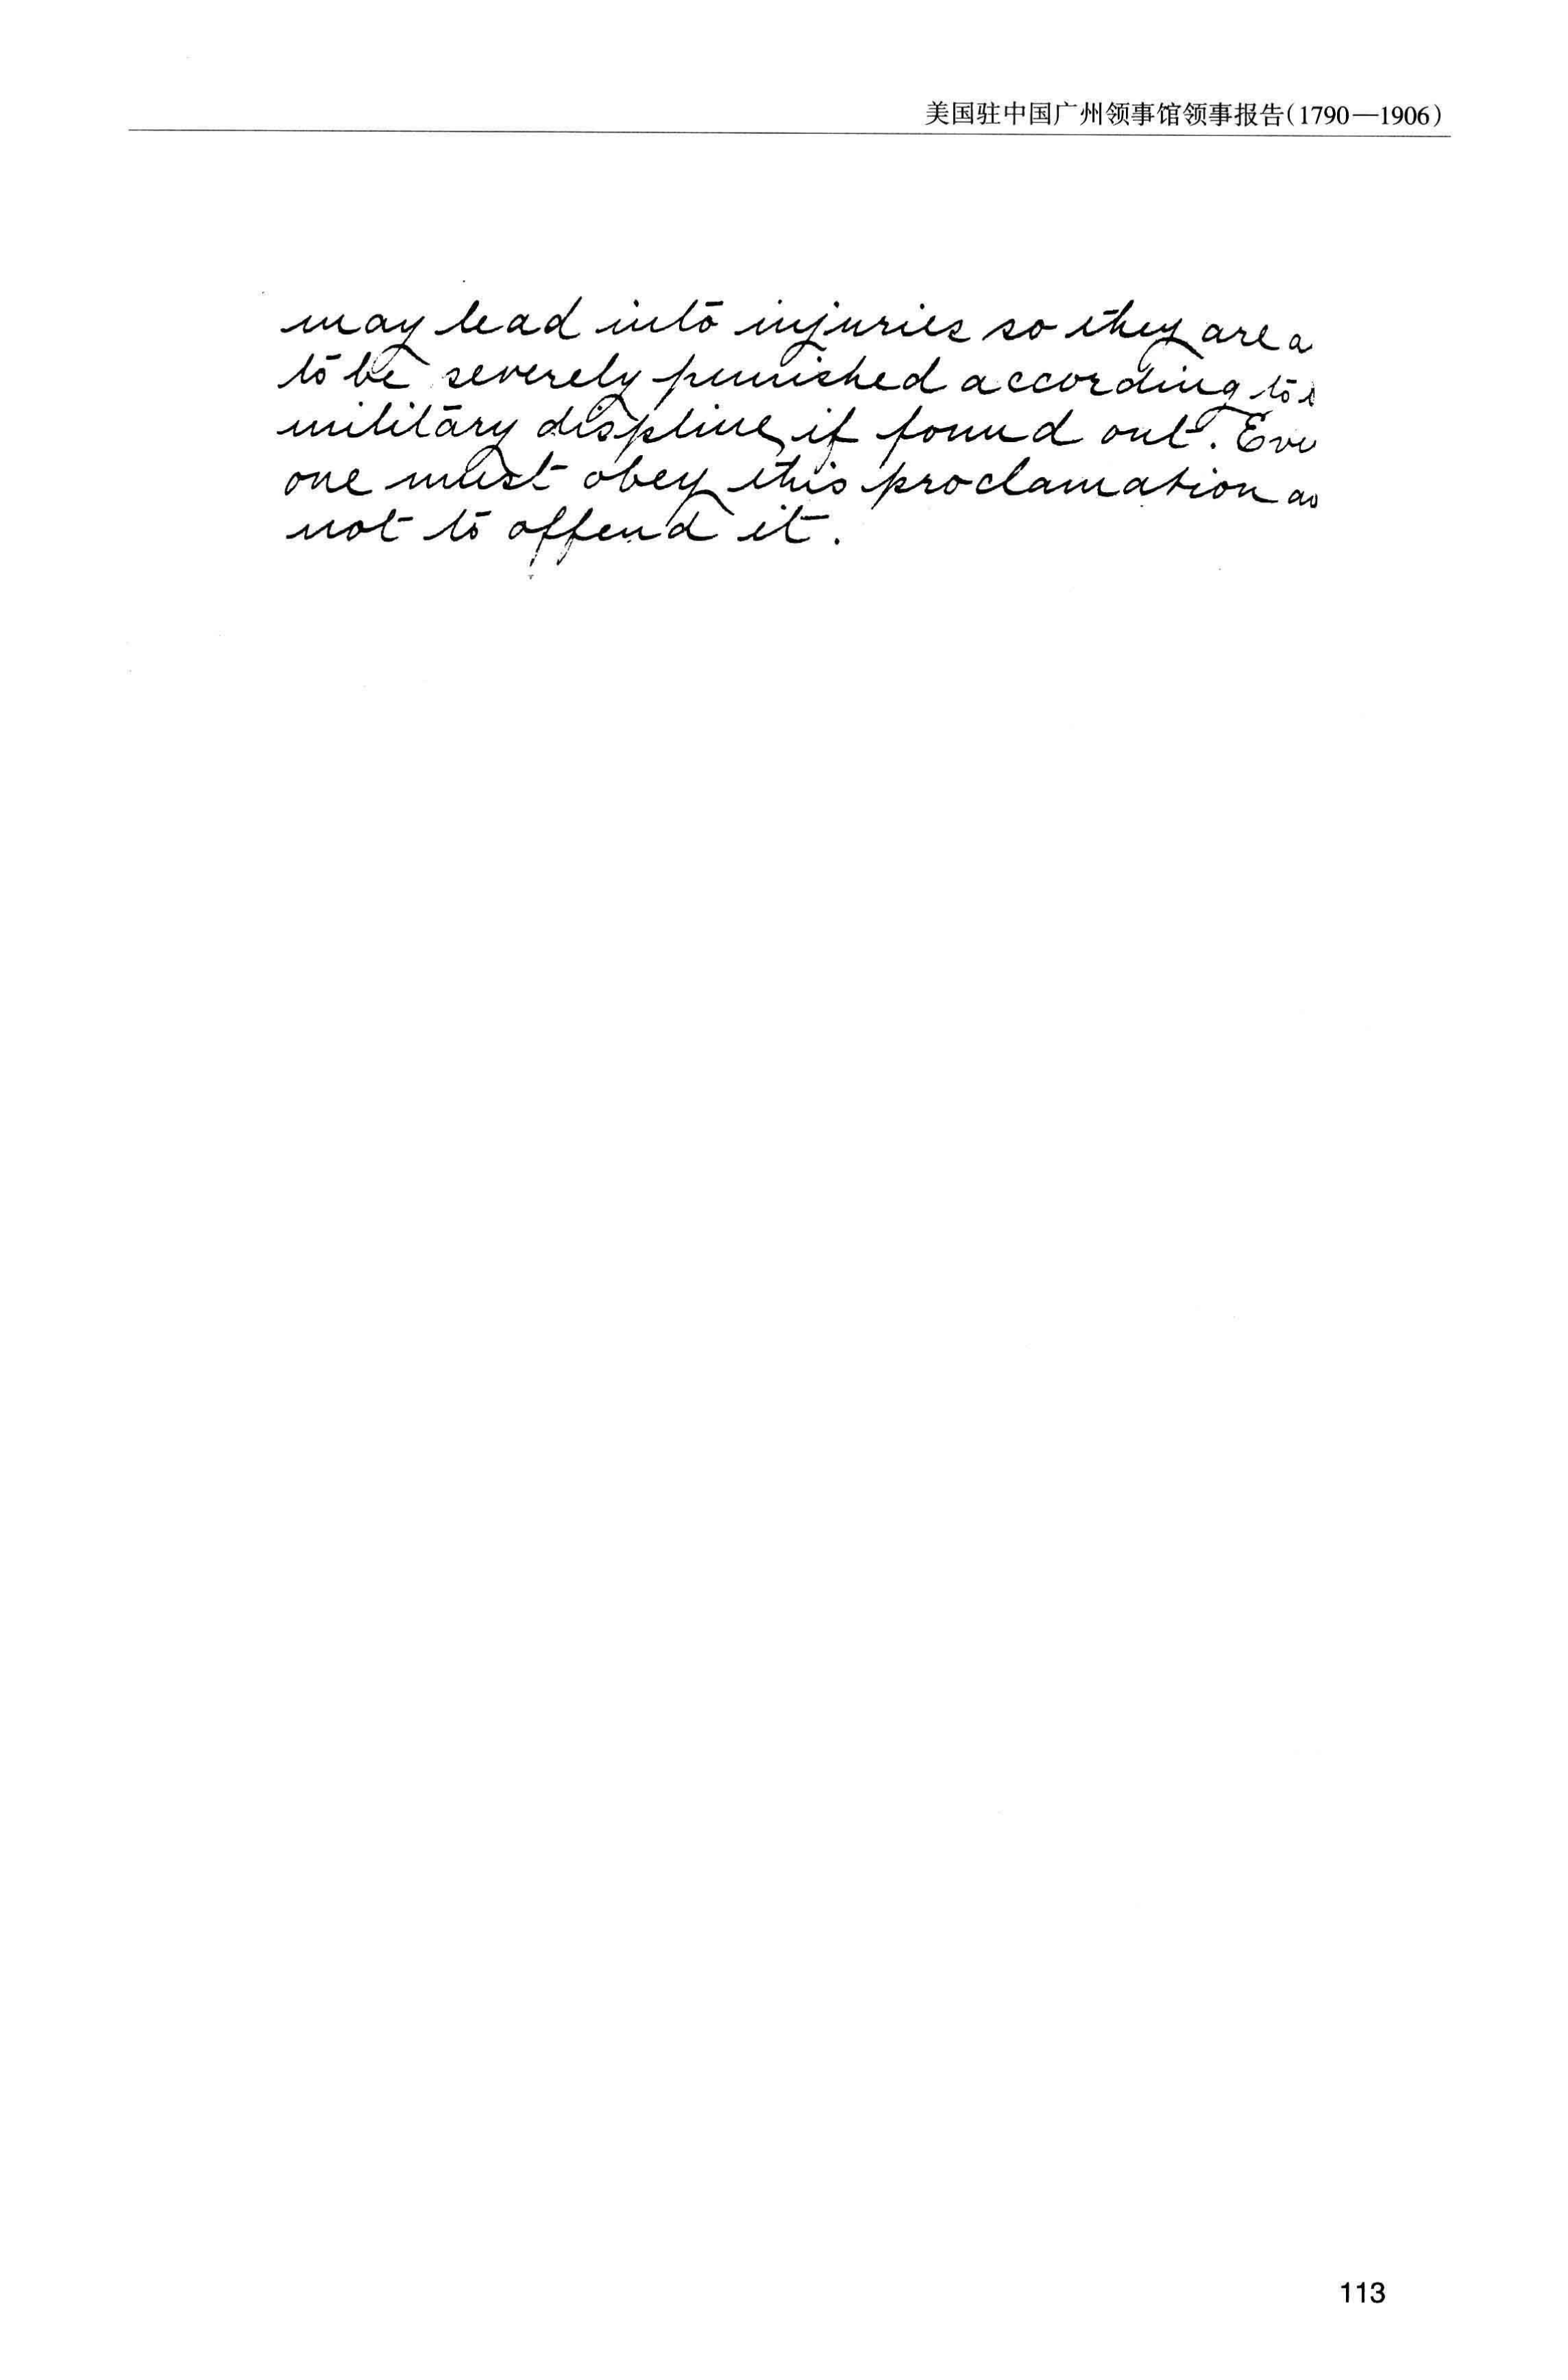 美国驻中国广州领事馆领事报告(1790—1906)
may lead into injuries so they are a
to be severely punished according to
military displine, if found out. Eve
one must obey this proclamation an
not to offend it.
113